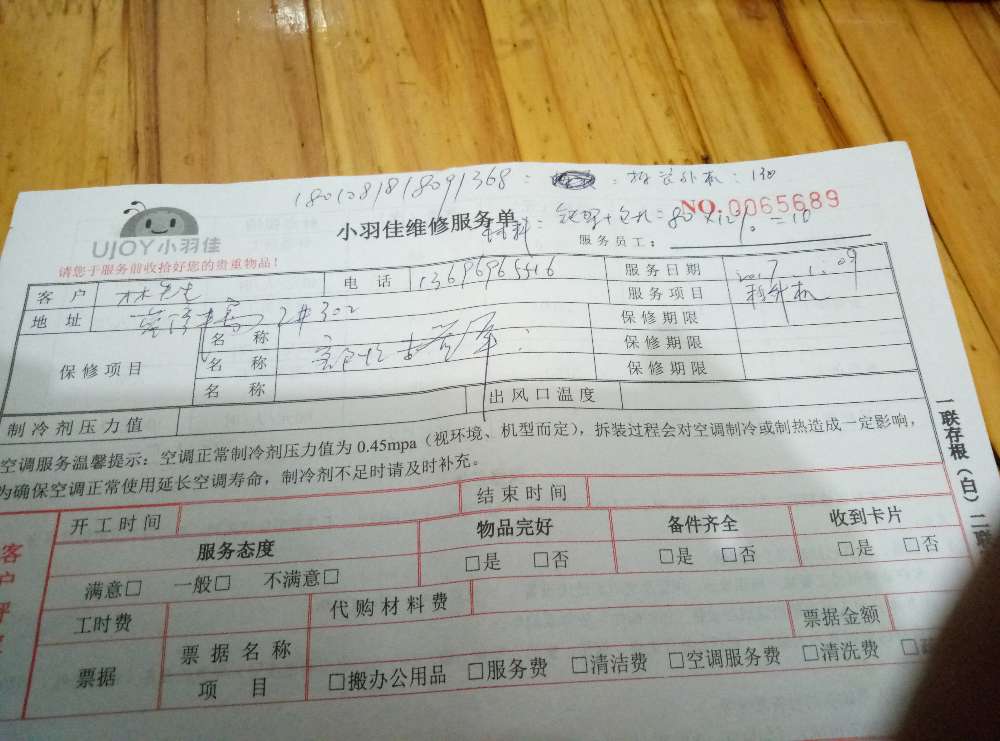 1801081818091368: : 拆装外机: 130
NO.0065689
UJOY小羽佳
小羽佳维修服务单
材料: +
=80
服务员工:
请您于服务前收拾好您的贵重物品!
客 户 林先生 电 话 13696965516 服务日期 2017
09
地 址 2#302 服务项目
保修项目 名 称 保修期限
名 称 保修期限
名 称 保修期限
制冷剂压力值 出风口温度
空调服务温馨提示:空调正常制冷剂压力值为 0.45mpa(视环境、机型而定),拆装过程会对空调制冷或制热造成一定影响,
为确保空调正常使用延长空调寿命,制冷剂不足时请及时补充。
一联存根(白)二联
开工时间 结束时间
服务态度 物品完好 备件齐全 收到卡片
满意□ 一般□ 不满意□ □是 □否 □是 □否 □是 □否
工时费 代购材料费
票据 票据名称 票据金额
项 目 □搬办公用品 □服务费 □清洁费 □空调服务费 □清洗费 □
客户评